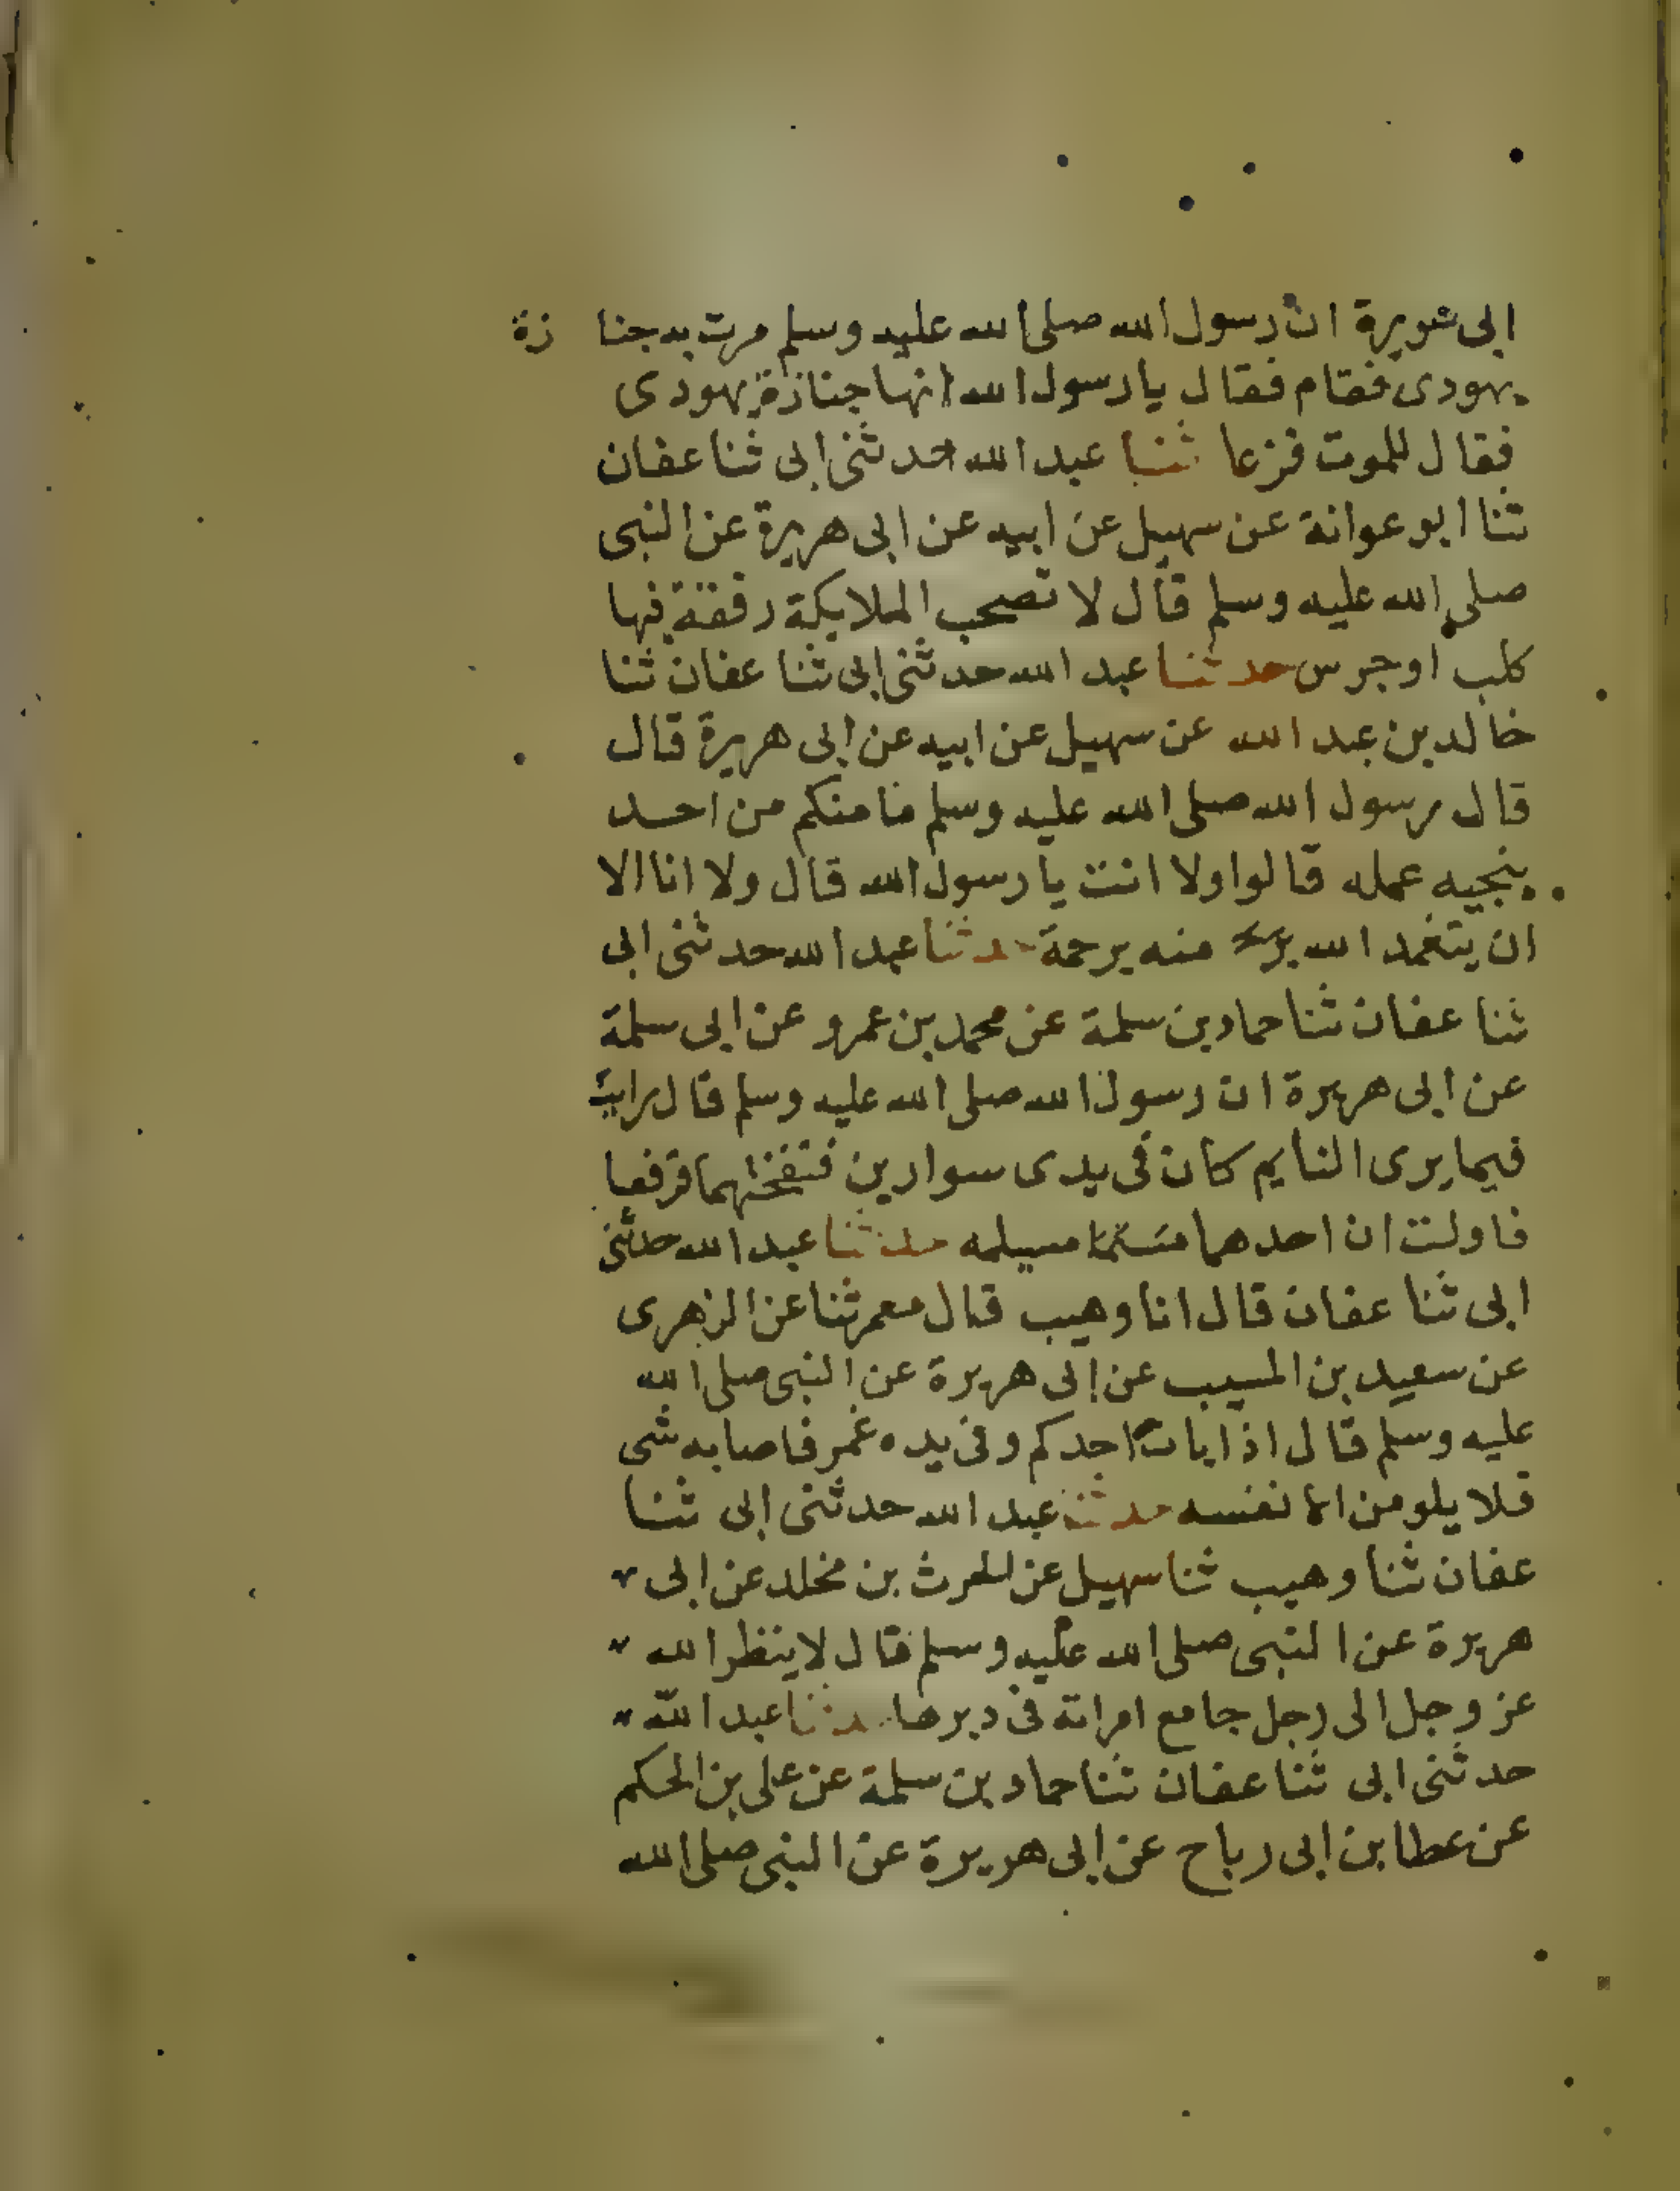 ابى هريرة ان رسول الله صلى الله عليه وسلم مرت به جنا زة
يهودى فقام فقال يا رسول الله انها جنازة يهودى
فقال للموت فزعا ثنا عبد الله حدثنى ابى ثنا عفان
ثنا ابو عوانة عن سهيل عن ابيه عن ابى هريرة عن النبى
صلى الله عليه وسلم قال لا تصحب الملايكة رفقة فيها
كلب او جرس حدثنا عبد الله حدثنى ابى ثنا عفان ثنا
خالد بن عبد الله عن سهيل عن ابيه عن ابى هريرة قال
قال رسول الله صلى الله عليه وسلم ما منكم من احد
ينجيه عمله قالوا ولا انت يا رسول الله قال ولا انا الا
ان يتغمد الله منه برحمة حدثنا عبد الله حدثنى ابى
ثنا عفان ثنا حماد بن سلمة عن محمد بن عمرو عن ابى سلمة
عن ابى هريرة ان رسول الله صلى الله عليه وسلم قال رايت
فيما يرى النايم كان فى يدى سوارين فنفختهما فرفعا
فاولت ان احدهما مسيلمه حدثنا عبد الله حدثنى
ابى ثنا عفان قال انا وهيب قال معمر ثنا عن الزهرى
عن سعيد بن المسيب عن ابى هريرة عن النبى صلى الله
عليه وسلم قال اذا بات احدكم وفى يده غمر فاصابه شى
فلا يلومن الا نفسه حدثنا عبد الله حدثنى ابى ثنا
عفان ثنا وهيب ثنا سهيل عن الحرث بن مخلد عن ابى
هريرة عن النبى صلى الله عليه وسلم قال لا ينظر الله
عز وجل الى رجل جامع امراته فى دبرها حدثنا عبد الله
حدثنى ابى ثنا عفان ثنا حماد بن سلمة عن على بن الحكم
عن عطا بن ابى رباح عن ابى هريرة عن النبى صلى الله